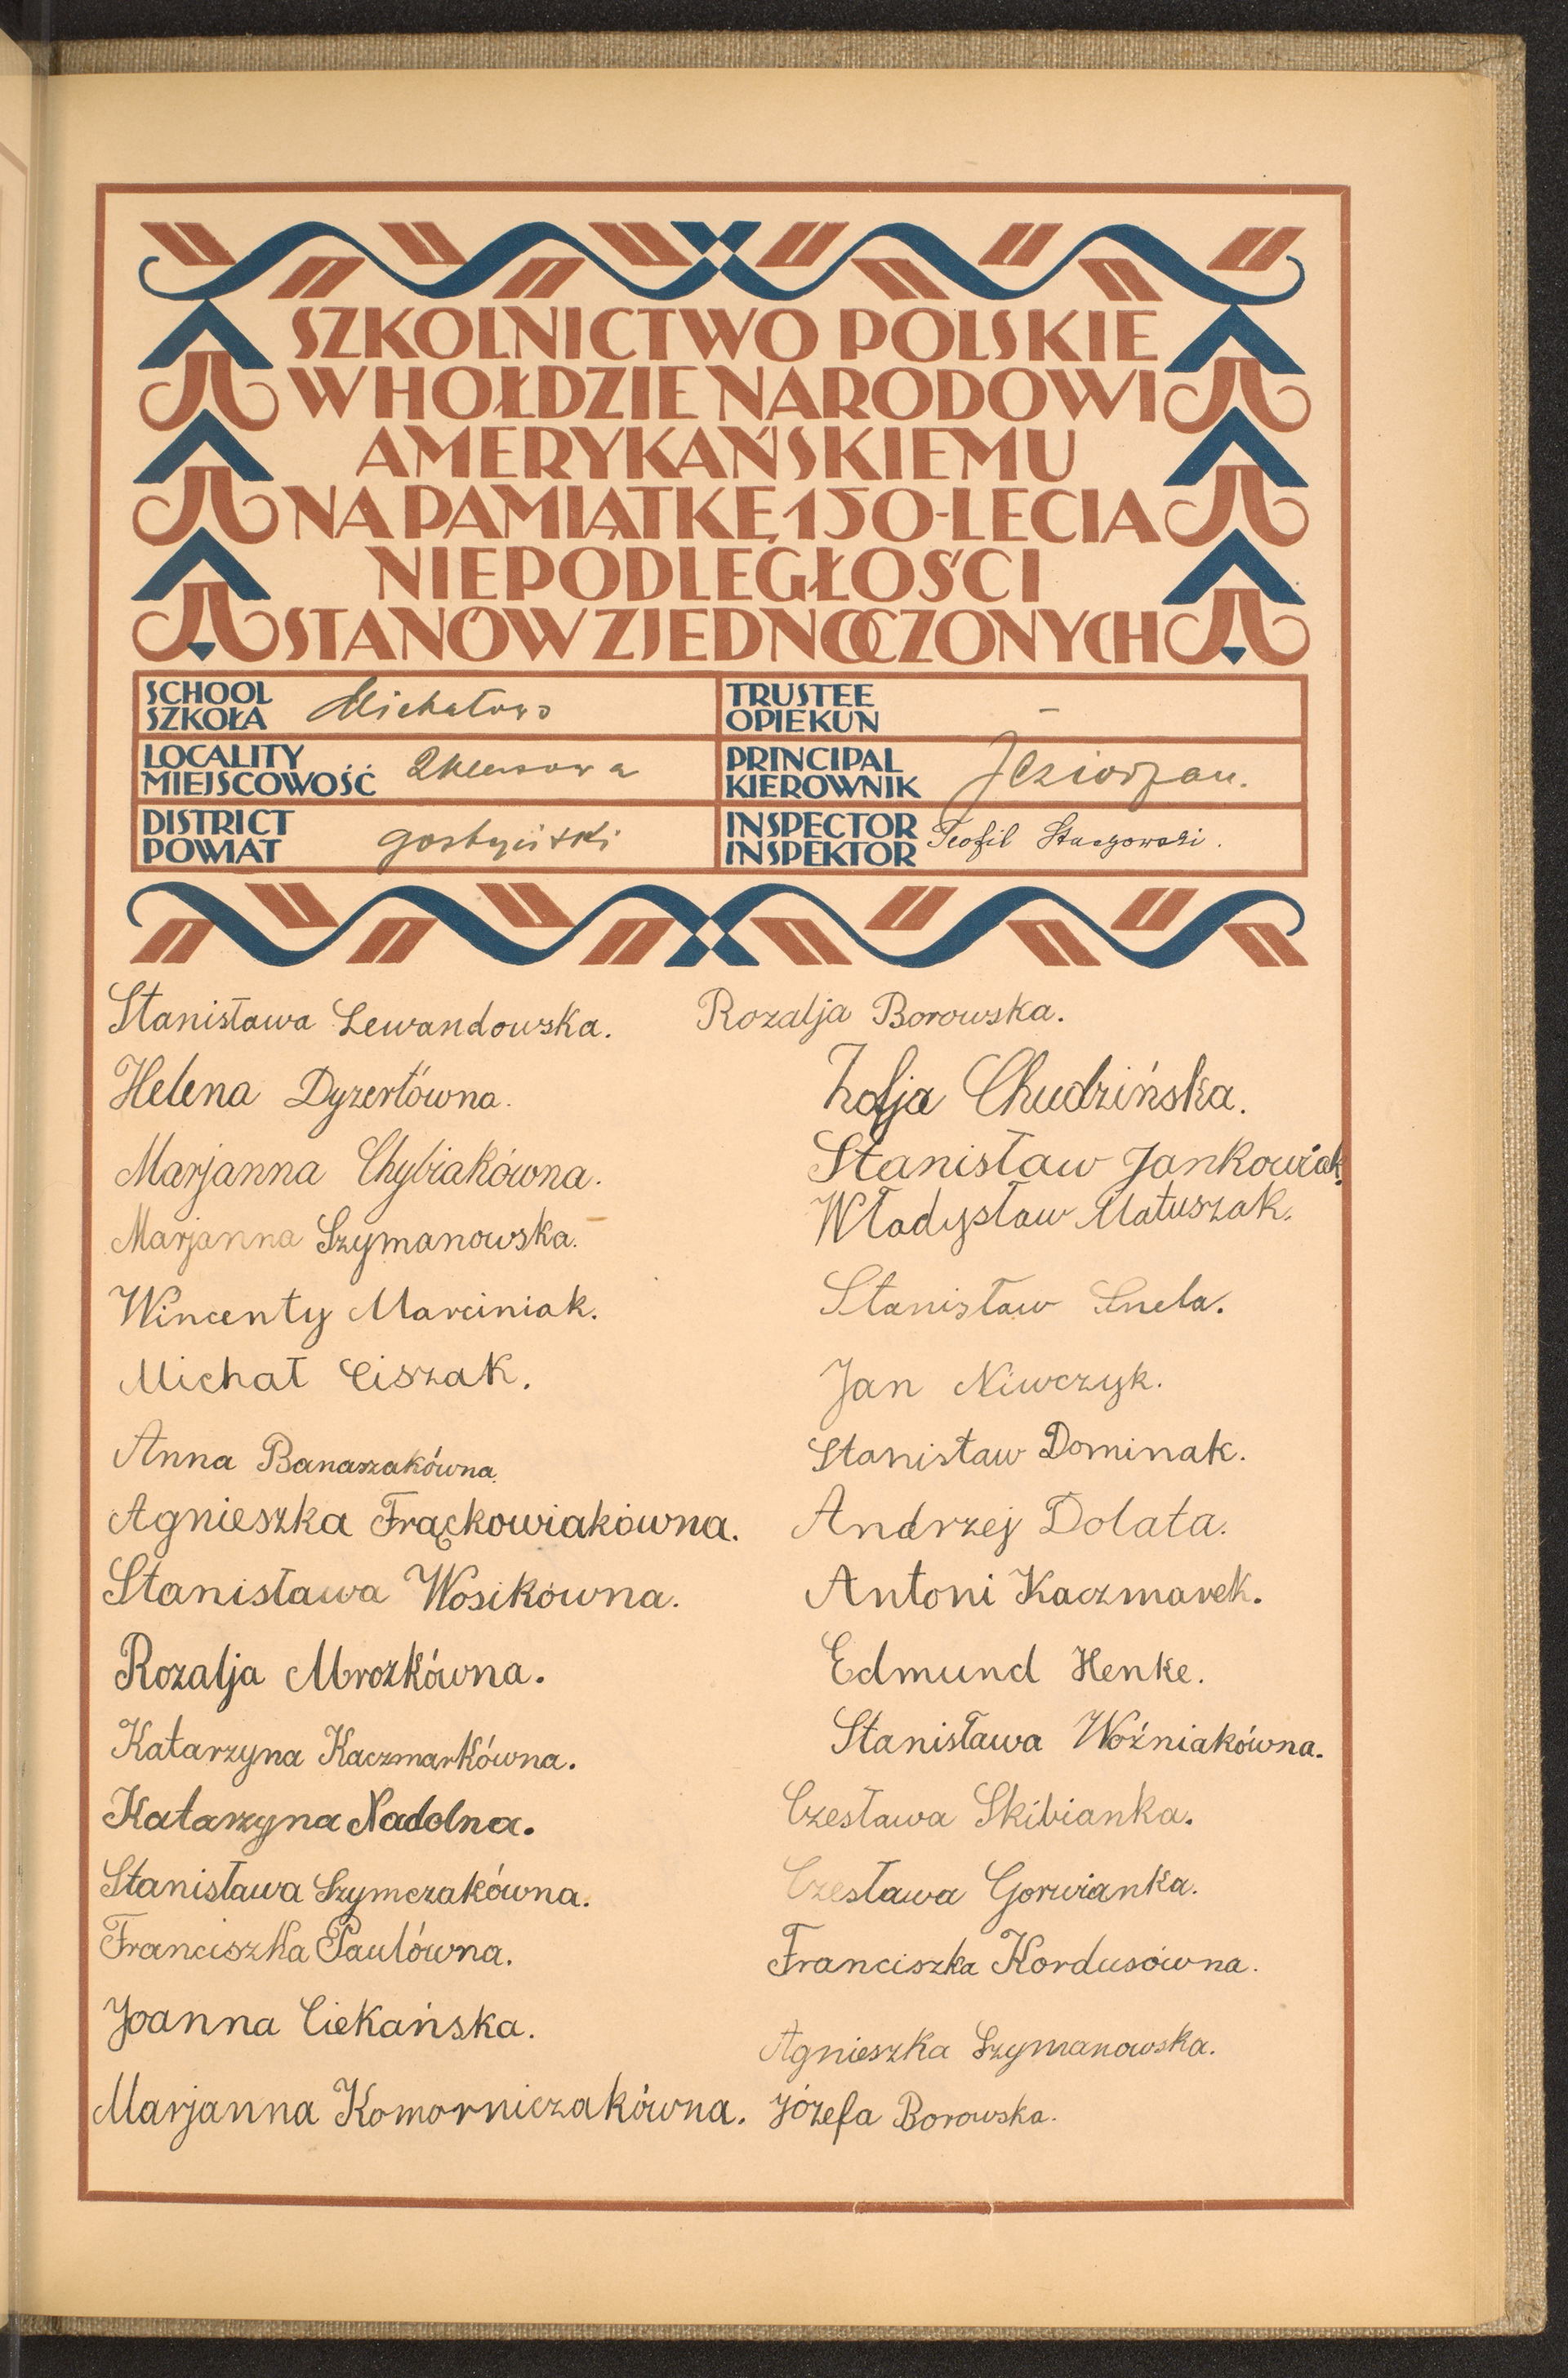 SZKOLNICTWO POLSKIE
W HOŁDZIE NARODOWI
AMERYKAŃSKIEMU
NA PAMIĄTKĘ 150-LECIA
NIEPODLEGŁOŚCI
STANÓW ZJEDNOCZONYCH
SCHOOL
SZKOŁA Michałowo
TRUSTEE
OPIEKUN –
LOCALITY
MIEJSCOWOŚĆ 2klasowa
PRINCIPAL
KIEROWNIK
DISTRICT
POWIAT gostyński
INSPECTOR Teofil
INSPEKTOR
Stanisława Lewandowska.
Helena Dyzertówna.
Marjanna Chybiakówna.
Marjanna Szymanowska.
Wincenty Marciniak.
Michał Ciszak.
Anna Banaszakówna.
Agnieszka Frąckowiakówna.
Stanisława Wosikówna.
Rozalja Mrozkówna.
Katarzyna Kaczmarkówna.
Katarzyna Nadolna.
Stanisława Szymczakówna.
Franciszka Paulówna.
Joanna Ciekańska.
Marjanna Komorniczakówna.
Rozalja Borowska.
Zofja Chudzińska.
Stanisław Jankowiak.
Władysław Matuszak.
Stanisław Snela.
Jan Niwczyk.
Stanisław Dominak.
Andrzej Dolata.
Antoni Kaczmarek.
Edmund Henke.
Stanisława Woźniakówna.
Czesława Skibianka.
Czesława Gorwianka.
Franciszka Kordusówna.
Agnieszka Szymanowska.
Józefa Borowska.